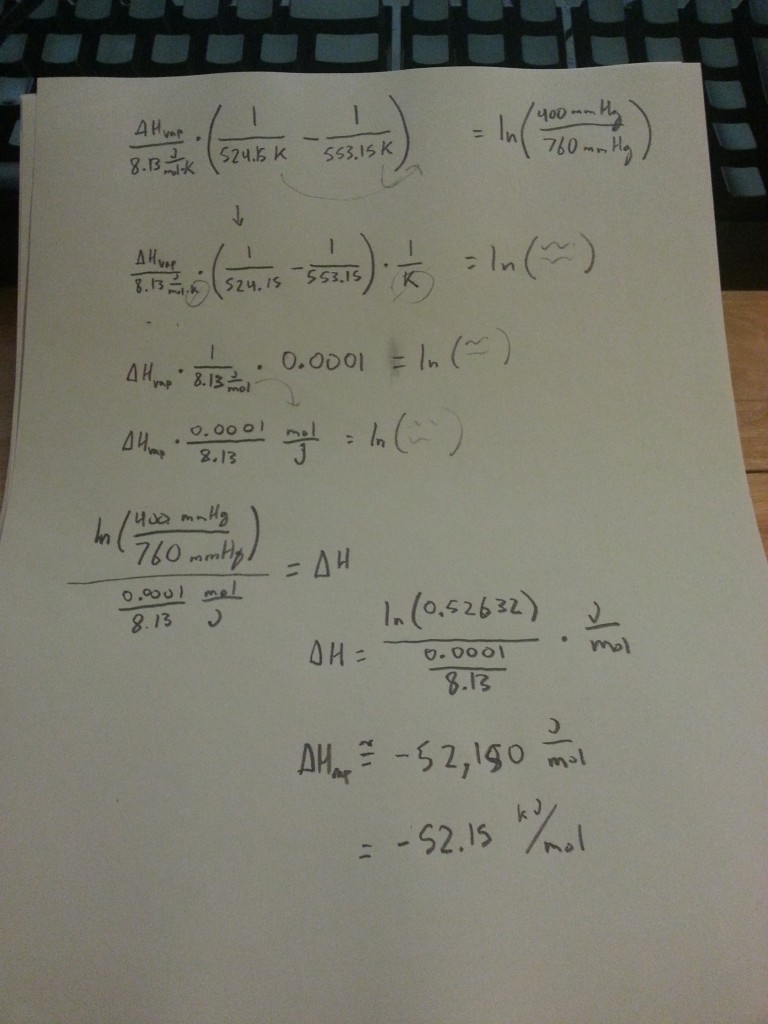 ΔH_vap / (8.13 J/mol·K) · (1/524.15 K − 1/553.15 K) = ln(400 mmHg / 760 mmHg)
↓
ΔH_vap / (8.13 J/mol·K) · (1/524.15 − 1/553.15) · 1/K = ln(≈)
ΔH_vap · 1/(8.13 J/mol) · 0.0001 = ln(≈)
ΔH_vap · 0.0001/8.13 mol/J = ln(≈)
ln(400 mmHg / 760 mmHg) / (0.0001/8.13 mol/J) = ΔH
ΔH = ln(0.52632) / (0.0001/8.13) · J/mol
ΔH_vap ≅ −52,180 J/mol
= −52.15 kJ/mol